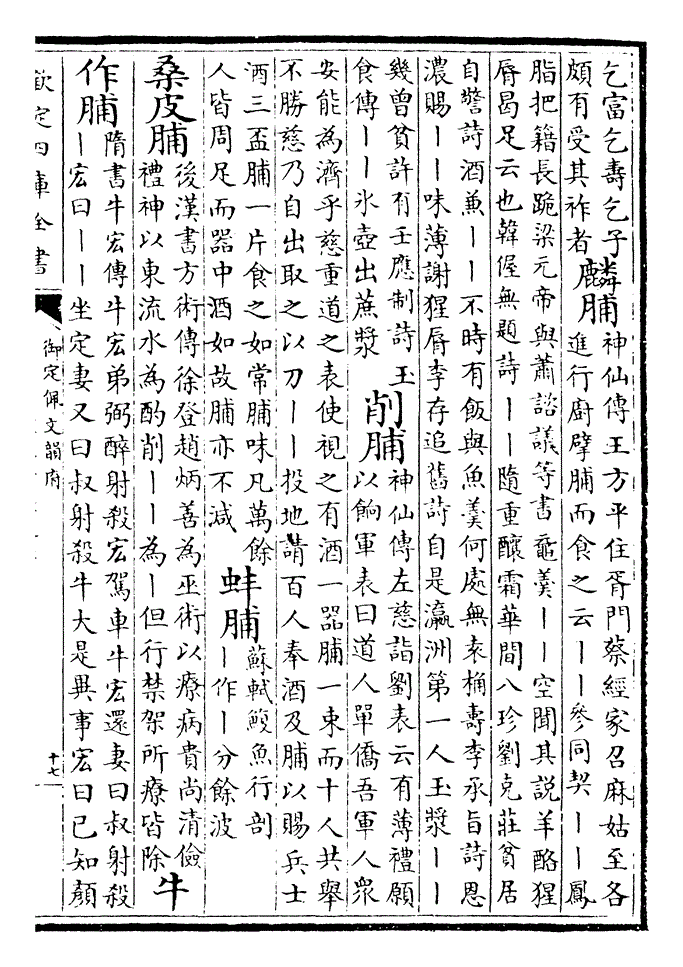 乞富乞壽乞子
頗有受其祚者
麟脯
神仙傳王方平住胥門蔡經家召麻姑至各
進行廚擘脯而食之云丨丨參同契丨丨鳳
脂把籍長跪梁元帝與蕭諮議等書龜羮丨丨空聞其説羊酪猩
脣曷足云也韓偓無題詩丨丨隨重釀霜華間八珍劉克莊貧居
自警詩酒兼丨丨不時有飯與魚羮何處無來桷壽李承旨詩恩
濃賜丨丨味薄謝猩脣李存追舊詩自是瀛洲第一人玉漿丨丨
幾曾貧許有壬應制詩玉
食傳丨丨氷壺出蔗漿
削脯
神仙傳左慈詣劉表云有薄禮願
以餉軍表曰道人單僑吾軍人衆
安能為濟乎慈重道之表使視之有酒一器脯一束而十人共舉
不勝慈乃自出取之以刀丨丨投地請百人奉酒及脯以賜兵士
酒三盃脯一片食之如常脯味凡萬餘
人皆周足而器中酒如故脯亦不減
蚌脯
蘇軾鰒魚行剖
丨作丨分餘波
桑皮脯
後漢書方術傳徐登趙炳善為巫術以療病貴尚清儉
禮神以東流水為酌削丨丨為丨但行禁架所療皆除
牛
作脯
隋書牛宏傳牛宏弟弼醉射殺宏駕車牛宏還妻曰叔射殺
丨宏曰丨丨坐定妻又曰叔射殺牛大是異事宏曰已知顔
欽定四庫全書
御定佩文韻府
十七